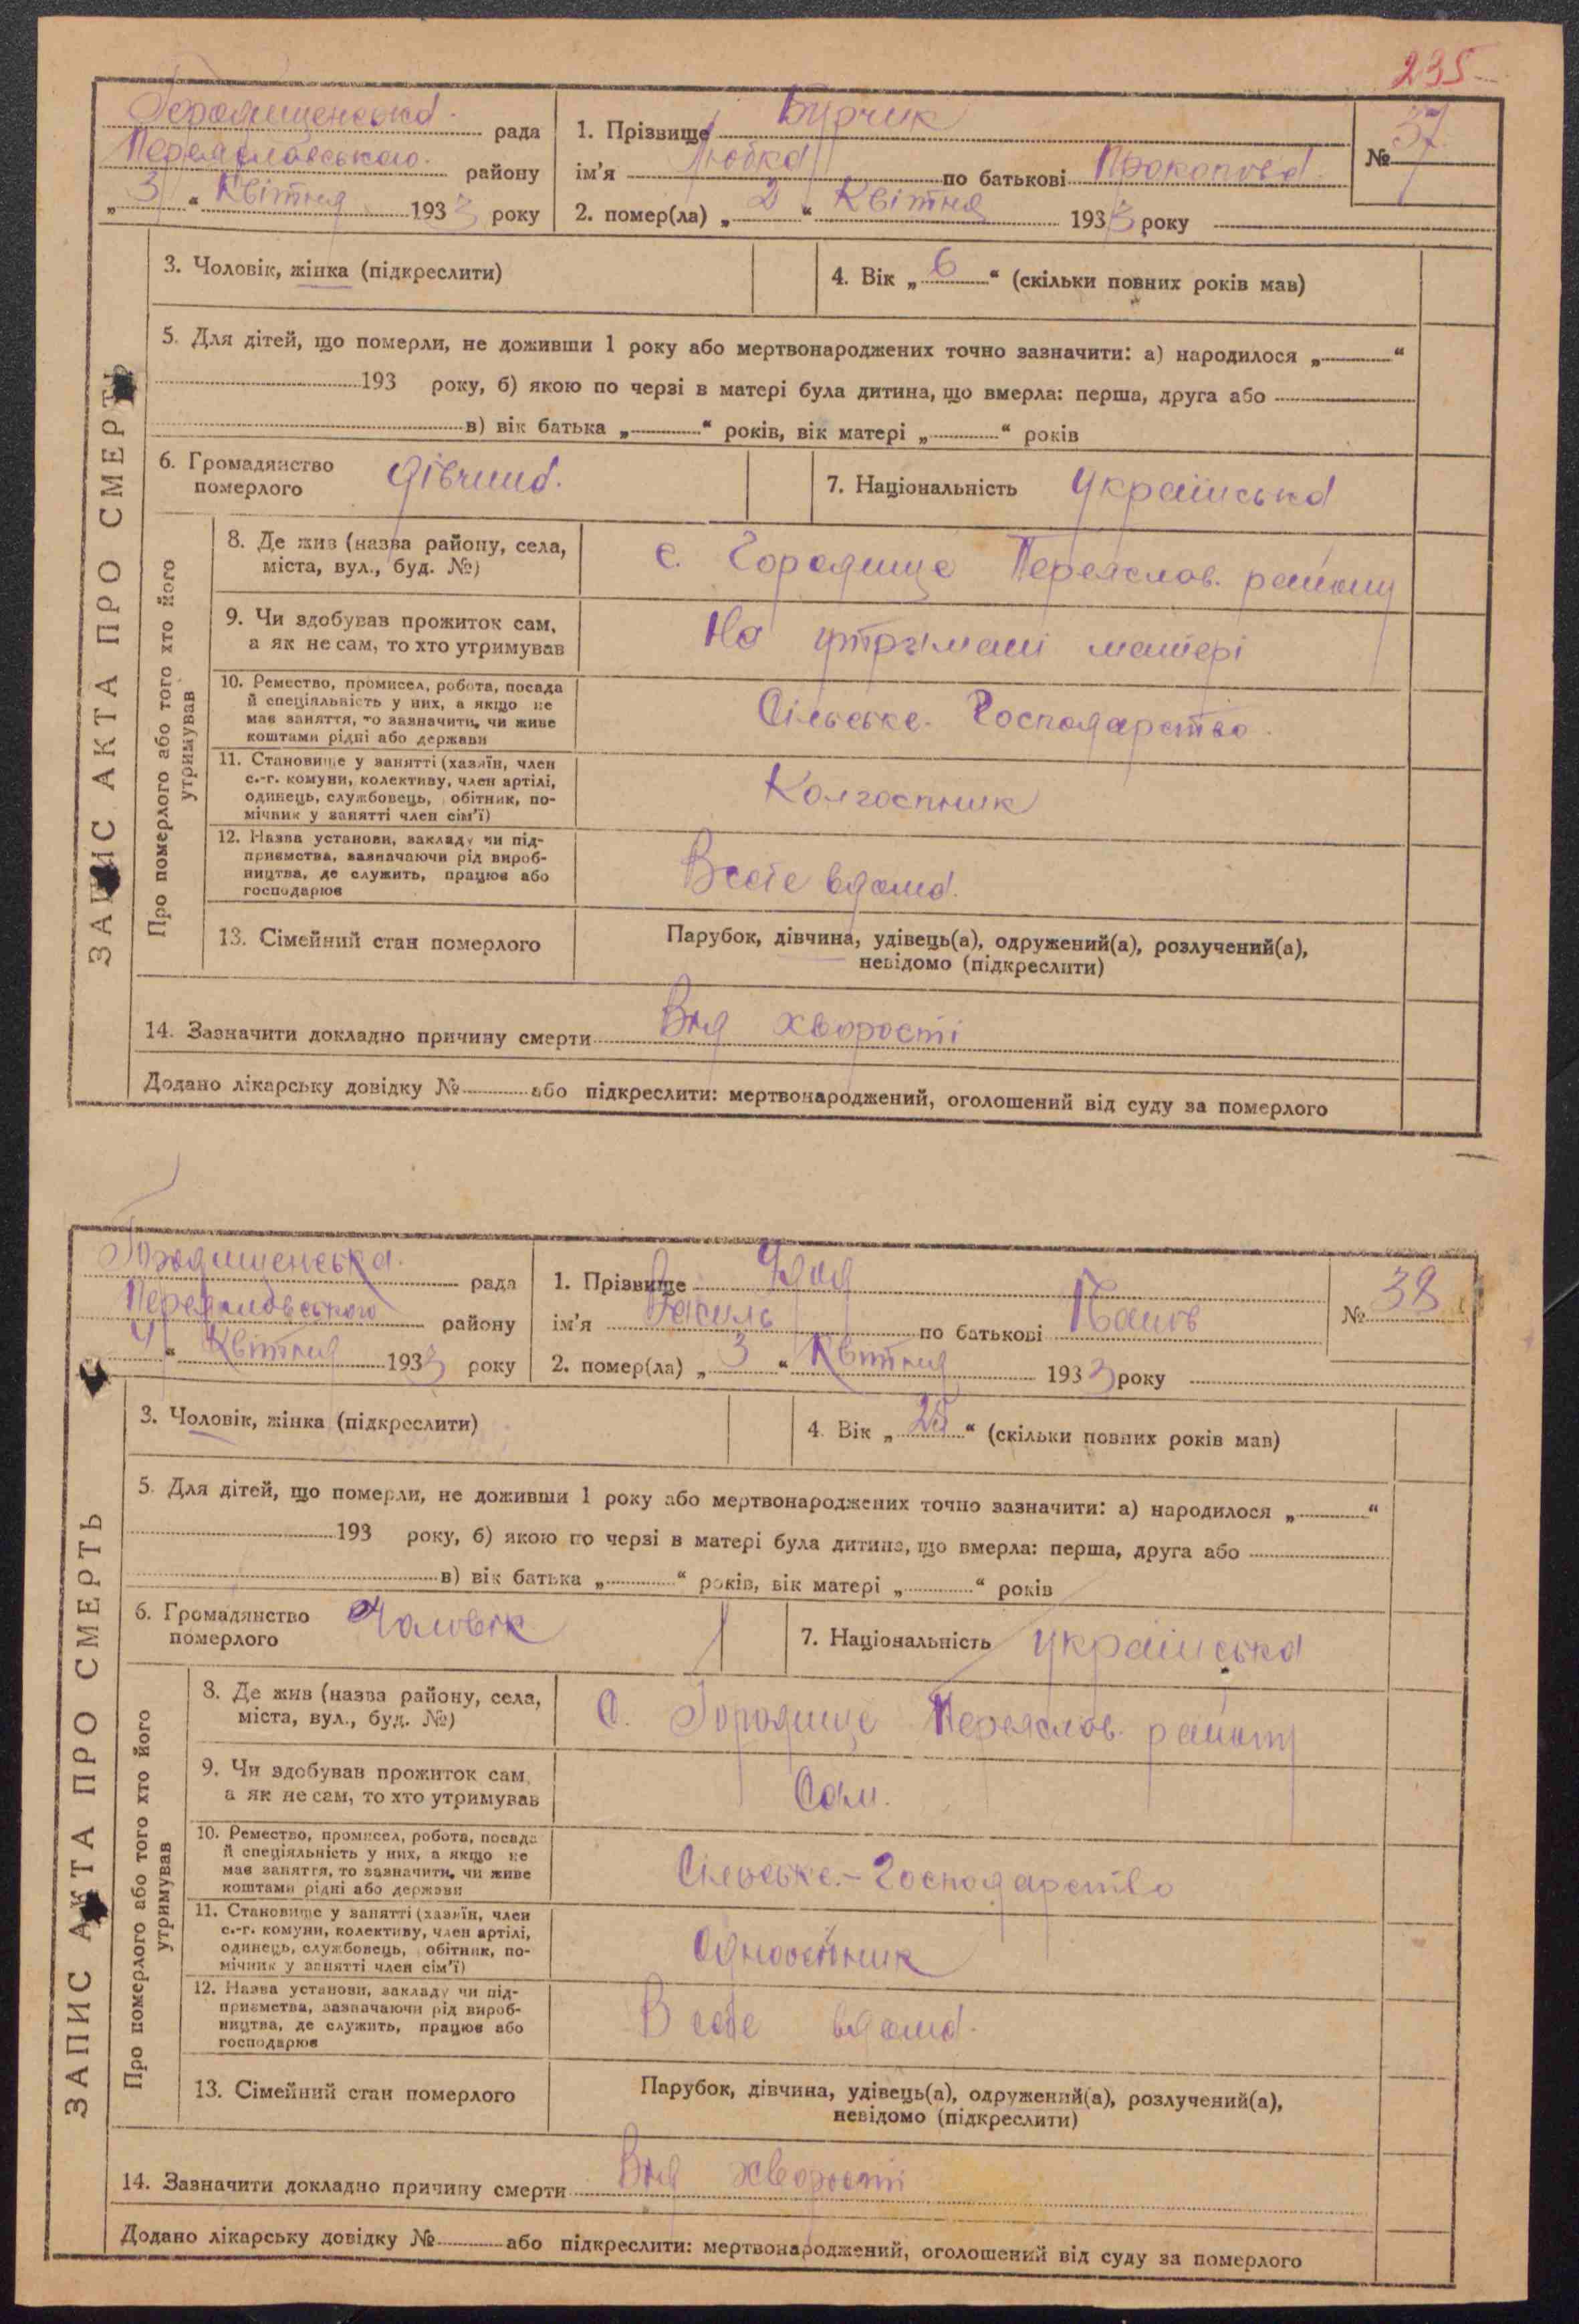 235
Городищенська рада
Переяславського району
„3“ Квітня 1933 року
1. Прізвище Бурчик
ім’я Любка по батькові Прокопова
2. помер(ла) „2“ Квітня 1933 року
№ 37
ЗАПИС АКТА ПРО СМЕРТЬ
3. Чоловік, жінка (підкреслити)
4. Вік „6“ (скільки повних років мав)
5. Для дітей, що померли, не доживши 1 року або мертвонароджених точно зазначити: а) народилося „“
193 року, б) якою по черзі в матері була дитина, що вмерла: перша, друга або
в) вік батька „“ років, вік матері „“ років
6. Громадянство
померлого
дівчина.
7. Національність українська
Про померлого або того хто його
утримував
8. Де жив (назва району, села,
міста, вул., буд. №)
с. Городище Переяслав. району
9. Чи здобував прожиток сам,
а як не сам, то хто утримував
На утримані матері
10. Ремество, промисел, робота, посада
й спеціяльність у них, а якщо не
мав заняття, то зазначити, чи живе
коштами рідні або держави
Сільське. Господарство.
11. Становище у занятті (хазяїн, член
с.-г. комуни, колективу, член артілі,
одинець, службовець, обітник, по-
мічник у занятті член сім’ї)
Колгоспник
12. Назва установи, закладу чи під-
приємства, зазначаючи рід вироб-
ництва, де служить, працює або
господарює
В себе вдома.
13. Сімейний стан померлого
Парубок, дівчина, удівець(а), одружений(а), розлучений(а),
невідомо (підкреслити)
14. Зазначити докладно причину смерти Вид хворості
Додано лікарську довідку № або підкреслити: мертвонароджений, оголошений від суду за померлого
Городищенська. рада
Переяславського району
4“ Квітня 1933 року
1. Прізвище
ім’я Василь по батькові Панов
2. помер(ла) „3“ Квітня 1933 року
№ 38
ЗАПИС АКТА ПРО СМЕРТЬ
3. Чоловік, жінка (підкреслити)
4. Вік „25“ (скільки повних років мав)
5. Для дітей, що померли, не доживши 1 року або мертвонароджених точно зазначити: а) народилося „“
193 року, б) якою по черзі в матері була дитина, що вмерла: перша, друга або
в) вік батька „“ років, вік матері „“ років
6. Громадянство
померлого
Чоловік
7. Національність українська
Про померлого або того хто його
утримував
8. Де жив (назва району, села,
міста, вул., буд. №)
С. Городище Переяслав. району
9. Чи здобував прожиток сам,
а як не сам, то хто утримував
Сам.
10. Ремество, промисел, робота, посада
й спеціяльність у них, а якщо не
мав заняття, то зазначити, чи живе
коштами рідні або держави
Сільське.-Господарство
11. Становище у занятті (хазяїн, член
с.-г. комуни, колективу, член артілі,
одинець, службовець, обітник, по-
мічник у занятті член сім’ї)
Одноосінник
12. Назва установи, закладу чи під-
приємства, зазначаючи рід вироб-
ництва, де служить, працює або
господарює
В себе вдома.
13. Сімейний стан померлого
Парубок, дівчина, удівець(а), одружений(а), розлучений(а),
невідомо (підкреслити)
14. Зазначити докладно причину смерти Вид хворості
Додано лікарську довідку № або підкреслити: мертвонароджений, оголошений від суду за померлого